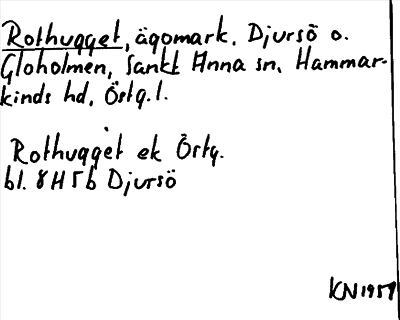 Rothugget, ägomark. Djursö o.
Gloholmen, Sankt Anna sn, Hammar-
kinds hd, Östg. l.
Rothugget ek Östg.
bl. 8H5b Djursö
KN 1957